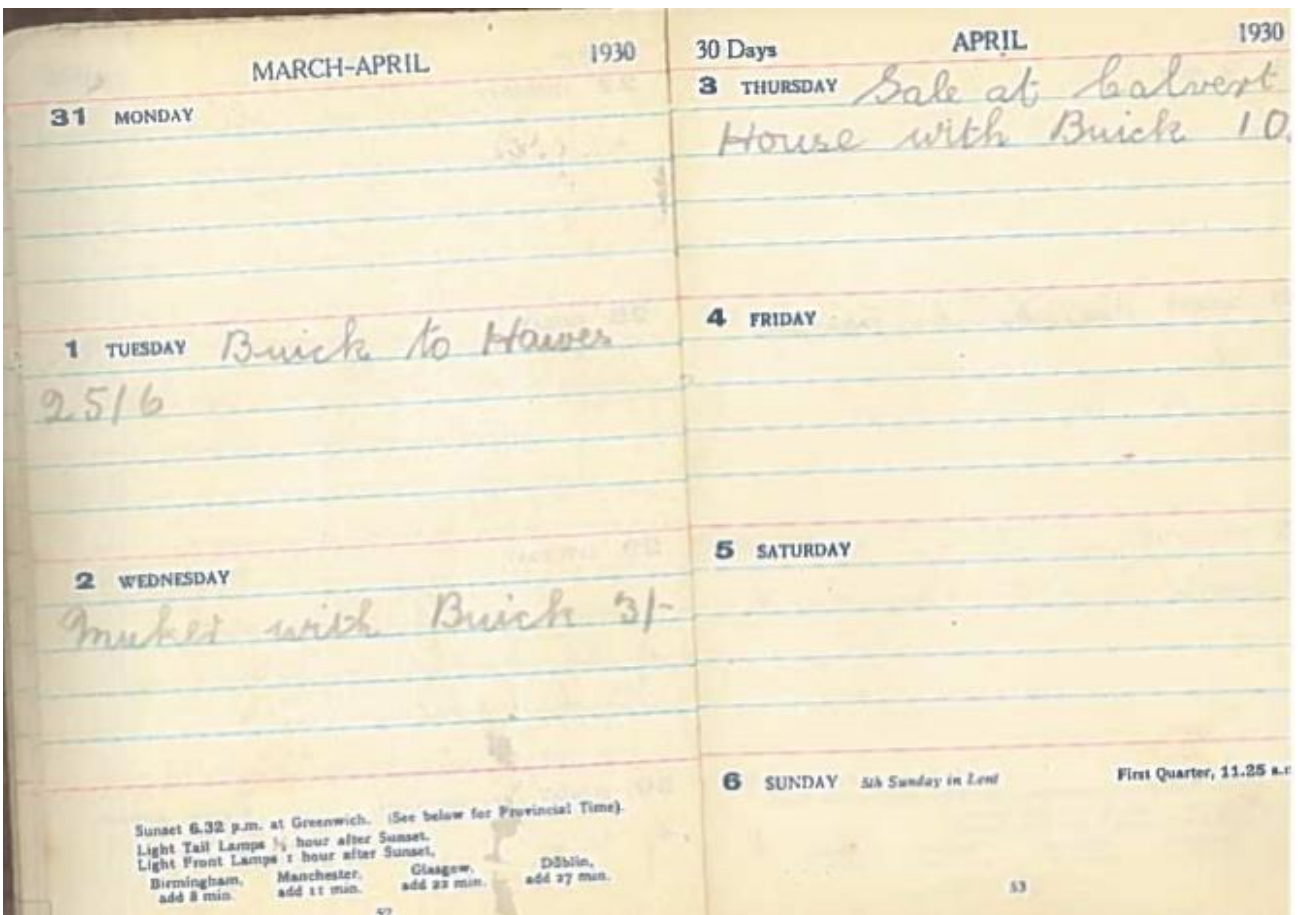 MARCH-APRIL 1930
31 MONDAY
1 TUESDAY Buick to Hawes
25/6
2 WEDNESDAY
Muker with Buick 3/-
Sunset 6.32 p.m. at Greenwich. (See below for Provincial Time).
Light Tail Lamps ½ hour after Sunset.
Light Front Lamps 1 hour after Sunset,
Birmingham, Manchester, Glasgow, Dublin,
add 8 min. add 11 min. add 22 min. add 27 min.
52
30 Days APRIL 1930
3 THURSDAY Sale at Calvert
House with Buick 10.
4 FRIDAY
5 SATURDAY
6 SUNDAY 5th Sunday in Lent First Quarter, 11.25 a.
53